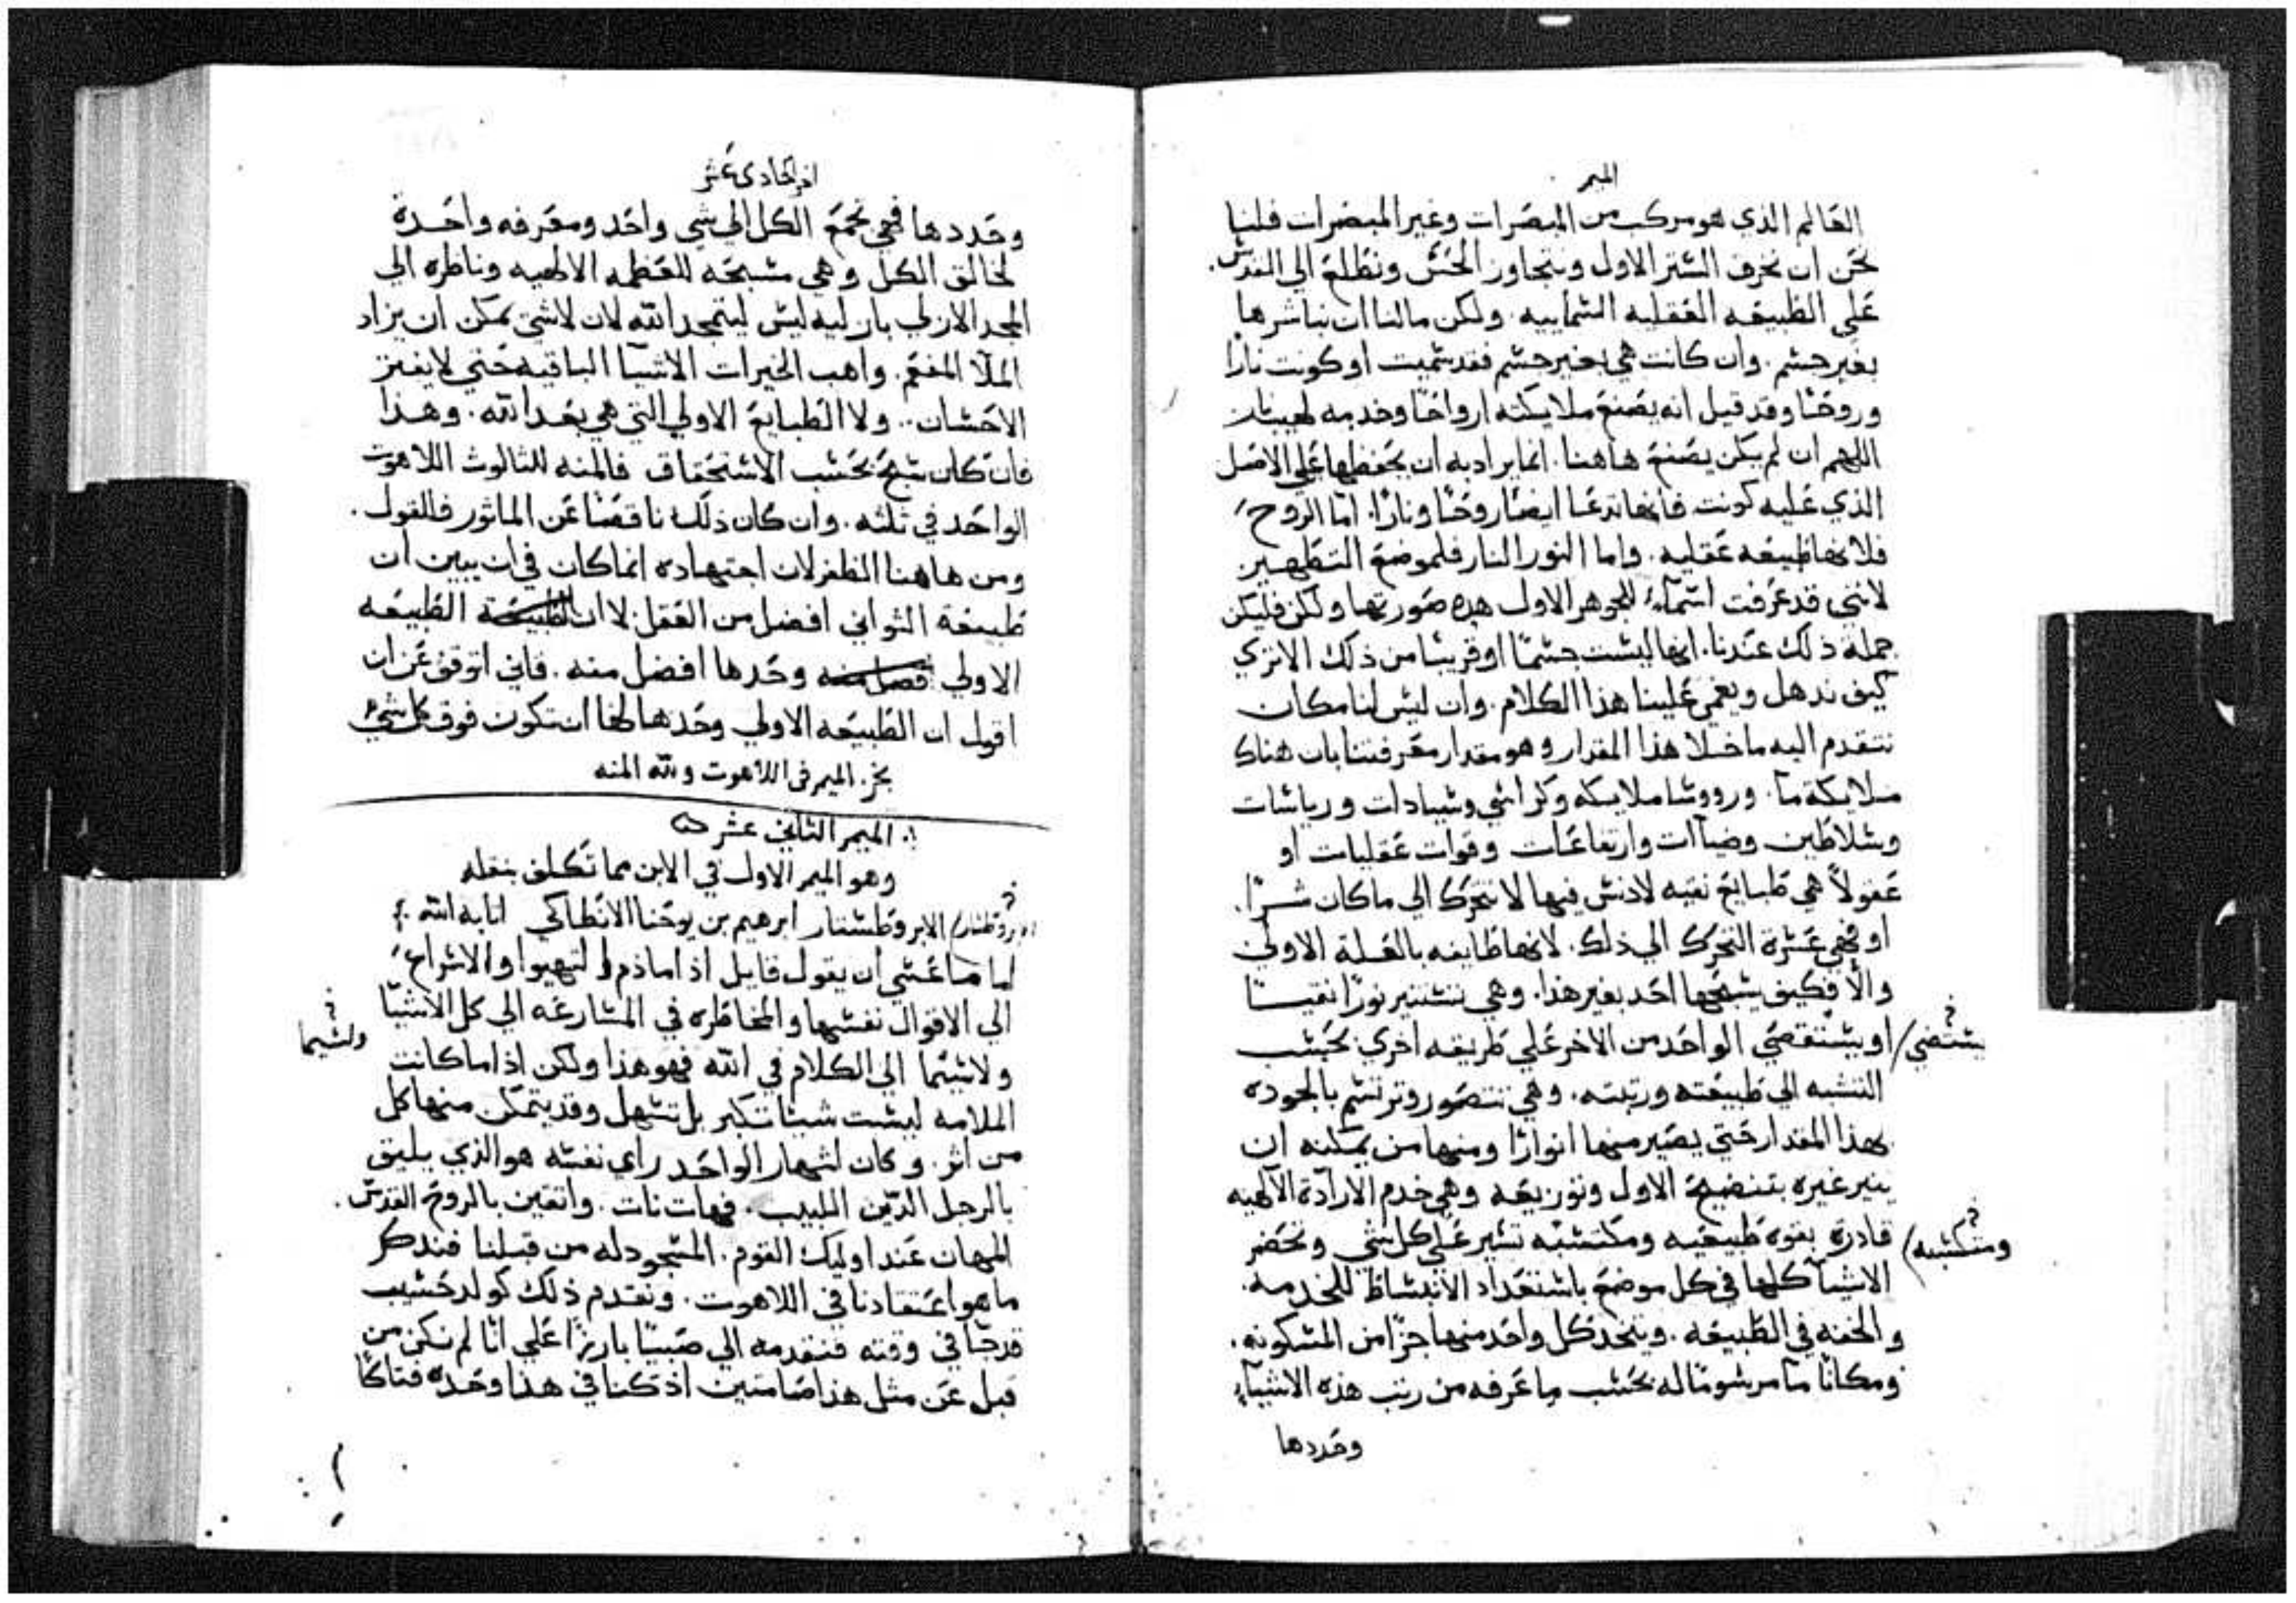 الميمر
العالم الذي هو مركب من المبصرات وغير المبصرات فلنا
نحن ان نخرق الستر الاول ونتجاوز الحس ونطلع الي القدس.
علي الطبيعه العقليه السماييه. ولكن مالنا ان نباشرها
بغير جسم. وان كانت هي بغير جسم فقد سميت او كونت نارًا
وروحًا وقد قيل انه يصنع ملايكته ارواحًا وخدمه لهيبنار
اللهم ان لم يكن يصنع هاهنا. انما يراد به ان يحفظها علي الاصل
الذي عليه كونت فانها تدعا ايضًا روحًا ونارًا. امّا الروح
فلانها طبيعه عقليه. واما النور النار فلموضع التطهير
لانني قد عرفت اسمآء للجوهر الاول هذه صورتها ولكن فليكن
جملة ذلك عندنا. انها ليست جسمًا او قريبًا من ذلك الا تري
كيف ندهل ويغمي علينا هذا الكلام. وان ليس لنا مكان
نتقدم اليه ما خلا هذا المقدار وهو مقدار معرفتنا بان هناك
ملايكة مآ. ورووسا ملايكه وكراسي وسيادات ورياسات
وسلاطين وضياآت وارتفاعات وقوات عقليات او
عقولاً هي طبايع نقيه لا دنس فيها لا تتحرك الي ما كان شرًا.
او فهي عسرة التحرك الي ذلك. لانها طايفه بالعلة الاولي
والّا فكيف يسبحها احد بغير هذا. وهي تستنير نورًا نقيسًا
او يستقصي الواحد من الاخر علي طريقه اخري بحسب
يستضي
التشبه الي طبيعته ورتبته. وهي تتصور وترتسم بالجوده
بهذا المقدار حتي يصير منها انوارًا ومنها من يمكنه ان
ينير غيره بتنضيح الاول وتوزيعه وهي خدم الارادة الآلهيه
قادرة بقوه طبيعيه ومكتسبه تسير علي كل شي وتحضر
ومتكسبه
الاشيآ كلها في كل موضع باستعداد الانبساط للخدمه.
والخفه في الطبيعه. ويتحد كل واحد منها جزًا من المسكونه.
ومكانًا مآ مرسومًا له بحسب ما عرفه من رتب هذه الاشيآء
وحددها
الحادي عشر
وحددها فهي تجمع الكل الي شي واحد ومعرفه واحدة
لخالق الكل وهي مسبحه للعظمه الالهيه وناظره الي
المجد الازلي بازليه ليس ليتمجد الله لان لا شي يمكن ان يزاد
الملآ المفعم. واهب الخيرات الاشيآ الباقيه حتي لا يفتر
الاحسان. ولا الطبايع الاولي التي هي بعد الله. وهذا
فان كان سبح بحسب الاستحقاق فالمنه للثالوث اللاهوت
الواحد في ثلثه. وان كان ذلك ناقصًا عن الماثور فالقول.
ومن هاهنا الظفر لان اجتهاده انما كان في ان يبين ان
طبيعة الثواني افضل من العقل لا ان الطبيعة الطبيعه
الاولي وحدها افضل منه. فاني اتوقف عن ان
اقول ان الطبيعه الاولي وحدها لها ان تكون فوق كل شي
نجز. الميمر في اللاهوت ولله المنه
الميمر الثاني عشر
وهو الميمر الاول في الابن مما تكلف بنقله
الابروطسبتار ابرهيم بن يوحنا الانطاكي اثابه الله
اما ما عسي ان يقول قايل اذا ما ذم التهيوا والاسراع
الي الاقوال نفسها والمخاطره في المسارعه الي كل الاشيآ
ولاسيّما الي الكلام في الله فهو هذا ولكن اذا ما كانت
ولسيما
الملامه ليست شيئا تكبر بل تسهل وقد يتمكن منها كل
من اثر. وكان اشهار الواحد راي نفسه هو الذي يليق
بالرجل الديّن اللبيب. فهات نات. واثقين بالروح القدس.
المهان عند اوليك القوم. المسجود له من قبلنا فنذكر
ما هو اعتقادنا في اللاهوت. ونقدم ذلك كولد حسيب
قد جآ في وقته فنقدمه الي صبيًا بارزًا علي انّا لم نكن من
قبل عن مثل هذا صامتين اذ كنا في هذا وحده فتاكًا